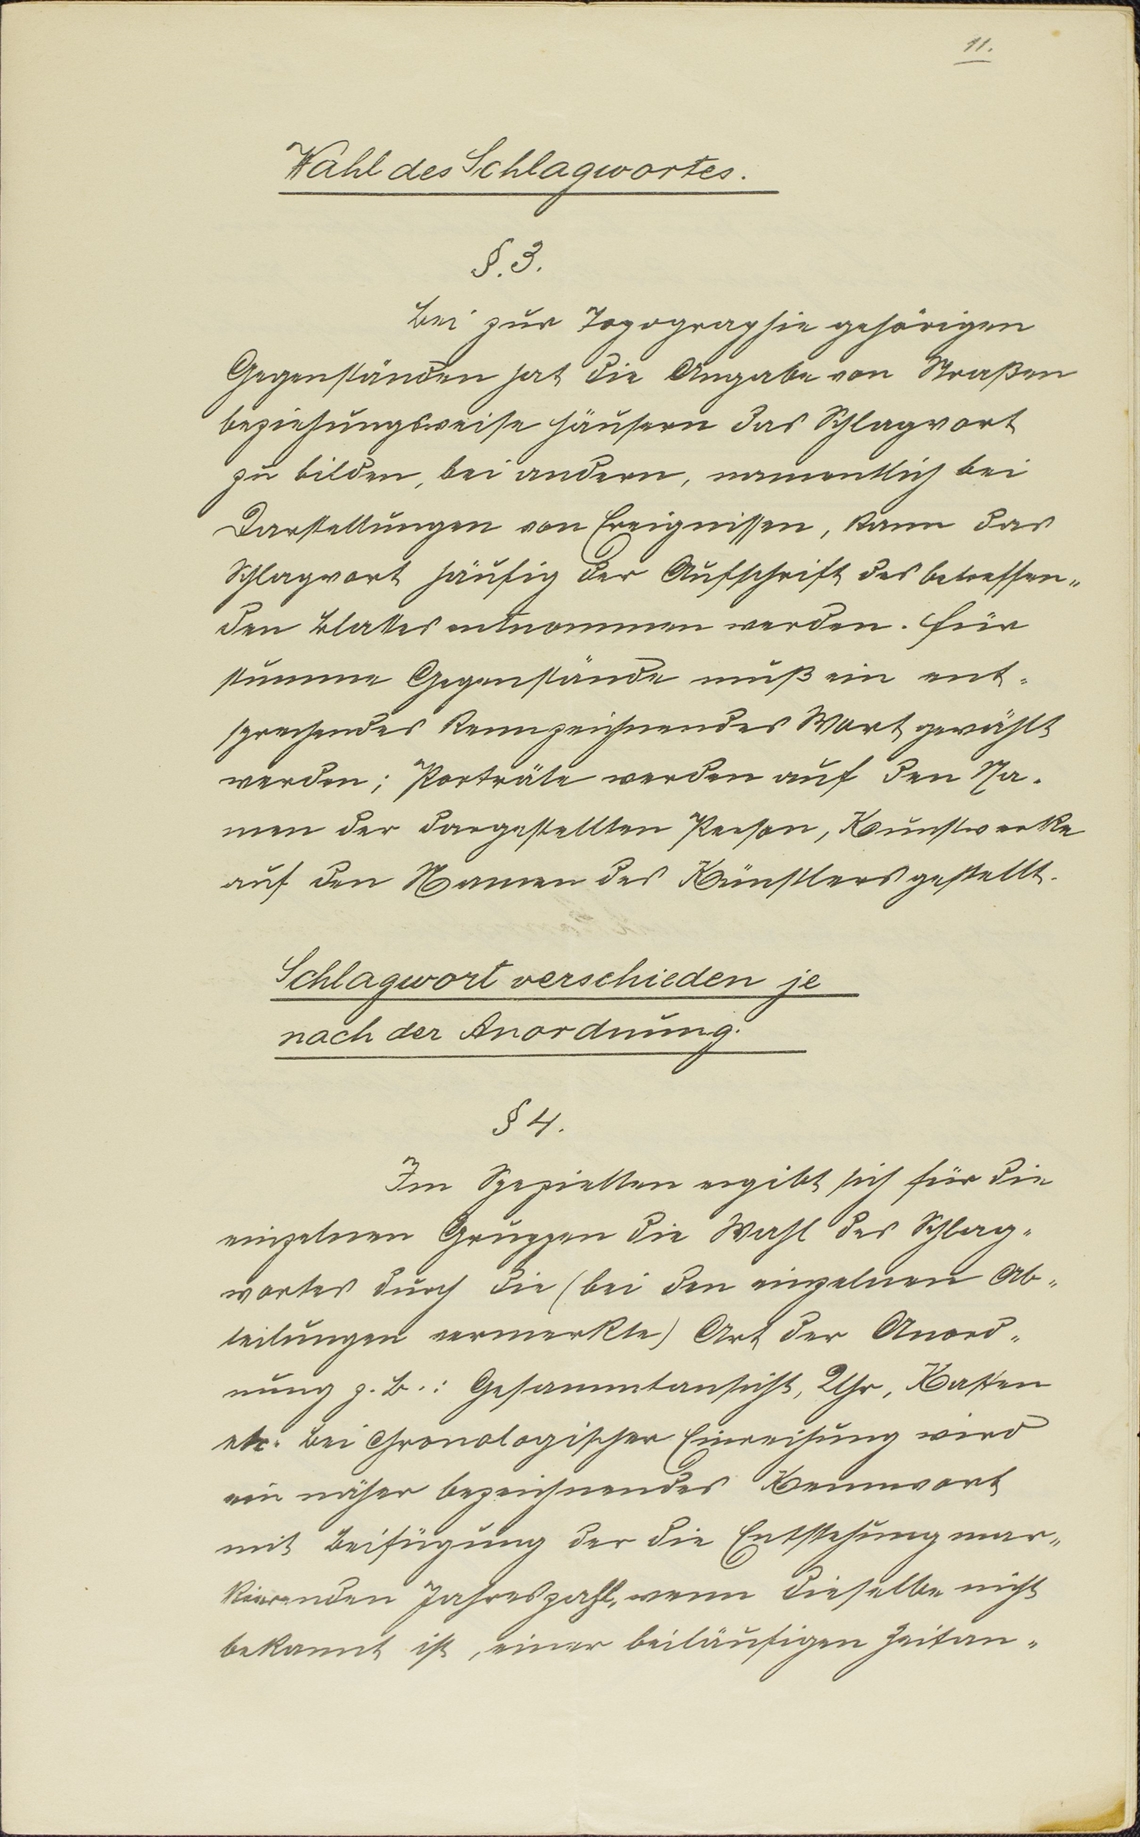 11.
Wahl des Schlagwortes.
§. 3.
Bei zur Topographie gehörigen
Gegenständen hat die Angabe von Straßen
beziehungsweise Häusern das Schlagwort
zu bilden, bei andern, namentlich bei
Darstellungen von Ereignissen, kann das
Schlagwort häufig der Aufschrift des betreffen-
den Blattes entnommen werden. Für
stumme Gegenstände muß ein ent-
sprechendes kennzeichnendes Wort gewählt
werden; Porträte werden auf den Na-
men der dargestellten Person, Kunstwerke
auf den Namen des Künstlers gestellt.
Schlagwort verschieden je
nach der Anordnung.
§ 4.
Im Speziellen ergibt sich für die
einzelnen Gruppen die Wahl des Schlag-
wortes durch die (bei den einzelnen Ab-
teilungen vermerkte) Art der Anord-
nung z. B.: Gesammtansicht, Uhr, Kasten
etc. Bei chronologischer Einreihung wird
ein näher bezeichnendes Kennwort
mit Beifügung der die Entstehung mar-
kierenden Jahreszahl, wenn dieselbe nicht
bekannt ist, einer beiläufigen Zeitan-